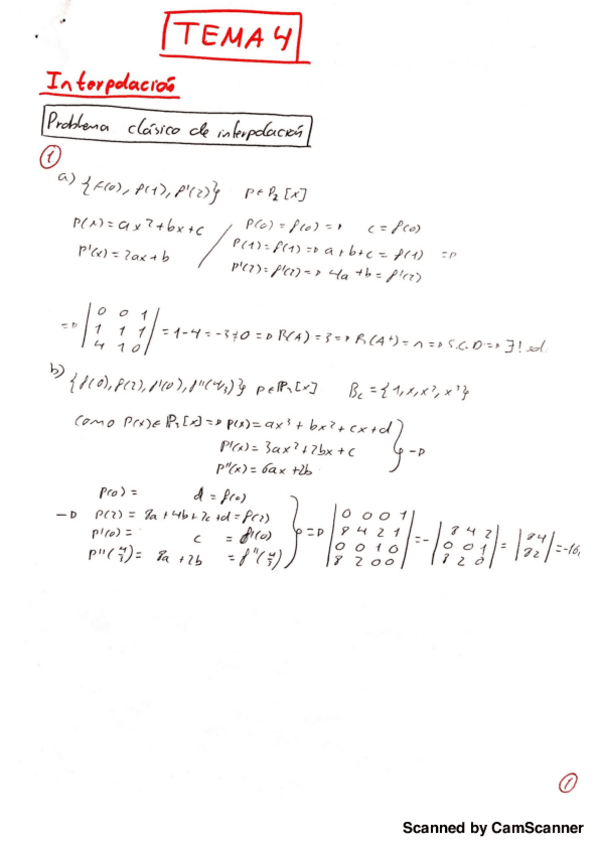 TEMA 4
Interpolación
Problema clásico de interpolación
①
a) {f(0), f(1), f'(2)} p∈P₂[x]
p(x)=ax²+bx+c / p(0)=f(0)=> c=f(0)
p'(x)=2ax+b / p(1)=f(1)=> a+b+c=f(1) =>
p'(2)=f'(2)=> 4a+b=f'(2)
=> |0 0 1; 1 1 1; 4 1 0| =1-4=-3≠0=> R(A)=3=> R(A*)=n=> S.C.D=> ∃! sol.
b) {f(0), f(2), f'(0), f''(4/3)} p∈P₃[x] Bc={1,x,x²,x³}
Como p(x)∈P₃[x]=> p(x)=ax³+bx²+cx+d
p'(x)=3ax²+2bx+c } ->
p''(x)=6ax+2b
p(0)= d=f(0)
-> p(2)= 8a+4b+2c+d=f(2)
p'(0)= c =f'(0)
p''(4/3)= 8a+2b =f''(4/3)
} => |0 0 0 1; 8 4 2 1; 0 0 1 0; 8 2 0 0| =- |8 4 2; 0 0 1; 8 2 0| = |8 4; 8 2| =-16,
①
Scanned by CamScanner